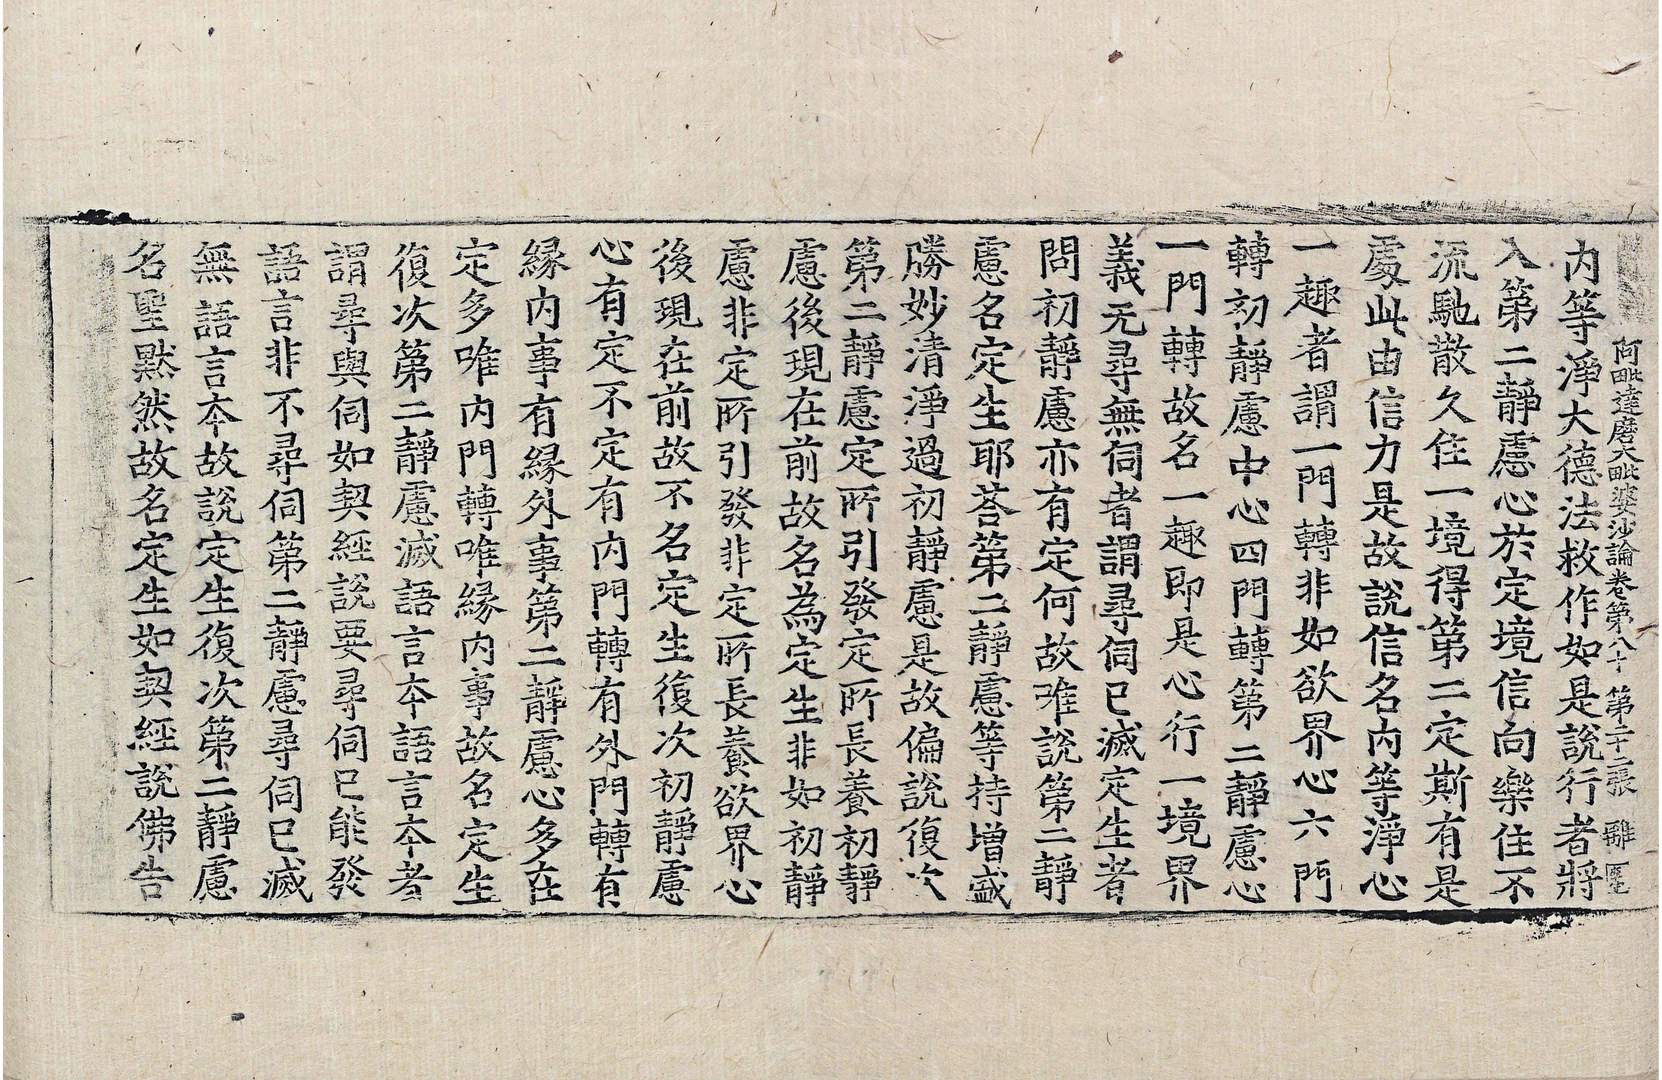 阿毗達磨大毗婆沙論卷第八十 第二十二張 雖
内等淨大德法救作如是說行者將
入第二靜慮心於定境信向樂住不
流馳散久住一境得第二定斯有是
處此由信力是故說信名内等淨心
一趣者謂一門轉非如欲界心六門
轉初靜慮中心四門轉第二靜慮心
一門轉故名一趣即是心行一境界
義无尋無伺者謂尋伺已滅定生者
問初靜慮亦有定何故唯說第二靜
慮名定生耶荅第二靜慮等持增盛
勝妙清淨過初靜慮是故偏說復次
第二靜慮定所引發定所長養初靜
慮後現在前故名為定生非如初靜
慮非定所引發非定所長養欲界心
後現在前故不名定生復次初靜慮
心有定不定有内門轉有外門轉有
緣内事有緣外事第二靜慮心多在
定多唯内門轉唯緣内事故名定生
復次第二靜慮滅語言夲語言夲者
謂尋與伺如契經說要尋伺已能發
語言非不尋伺第二靜慮尋伺已滅
無語言夲故說定生復次第二靜慮
名聖默然故名定生如契經說佛告